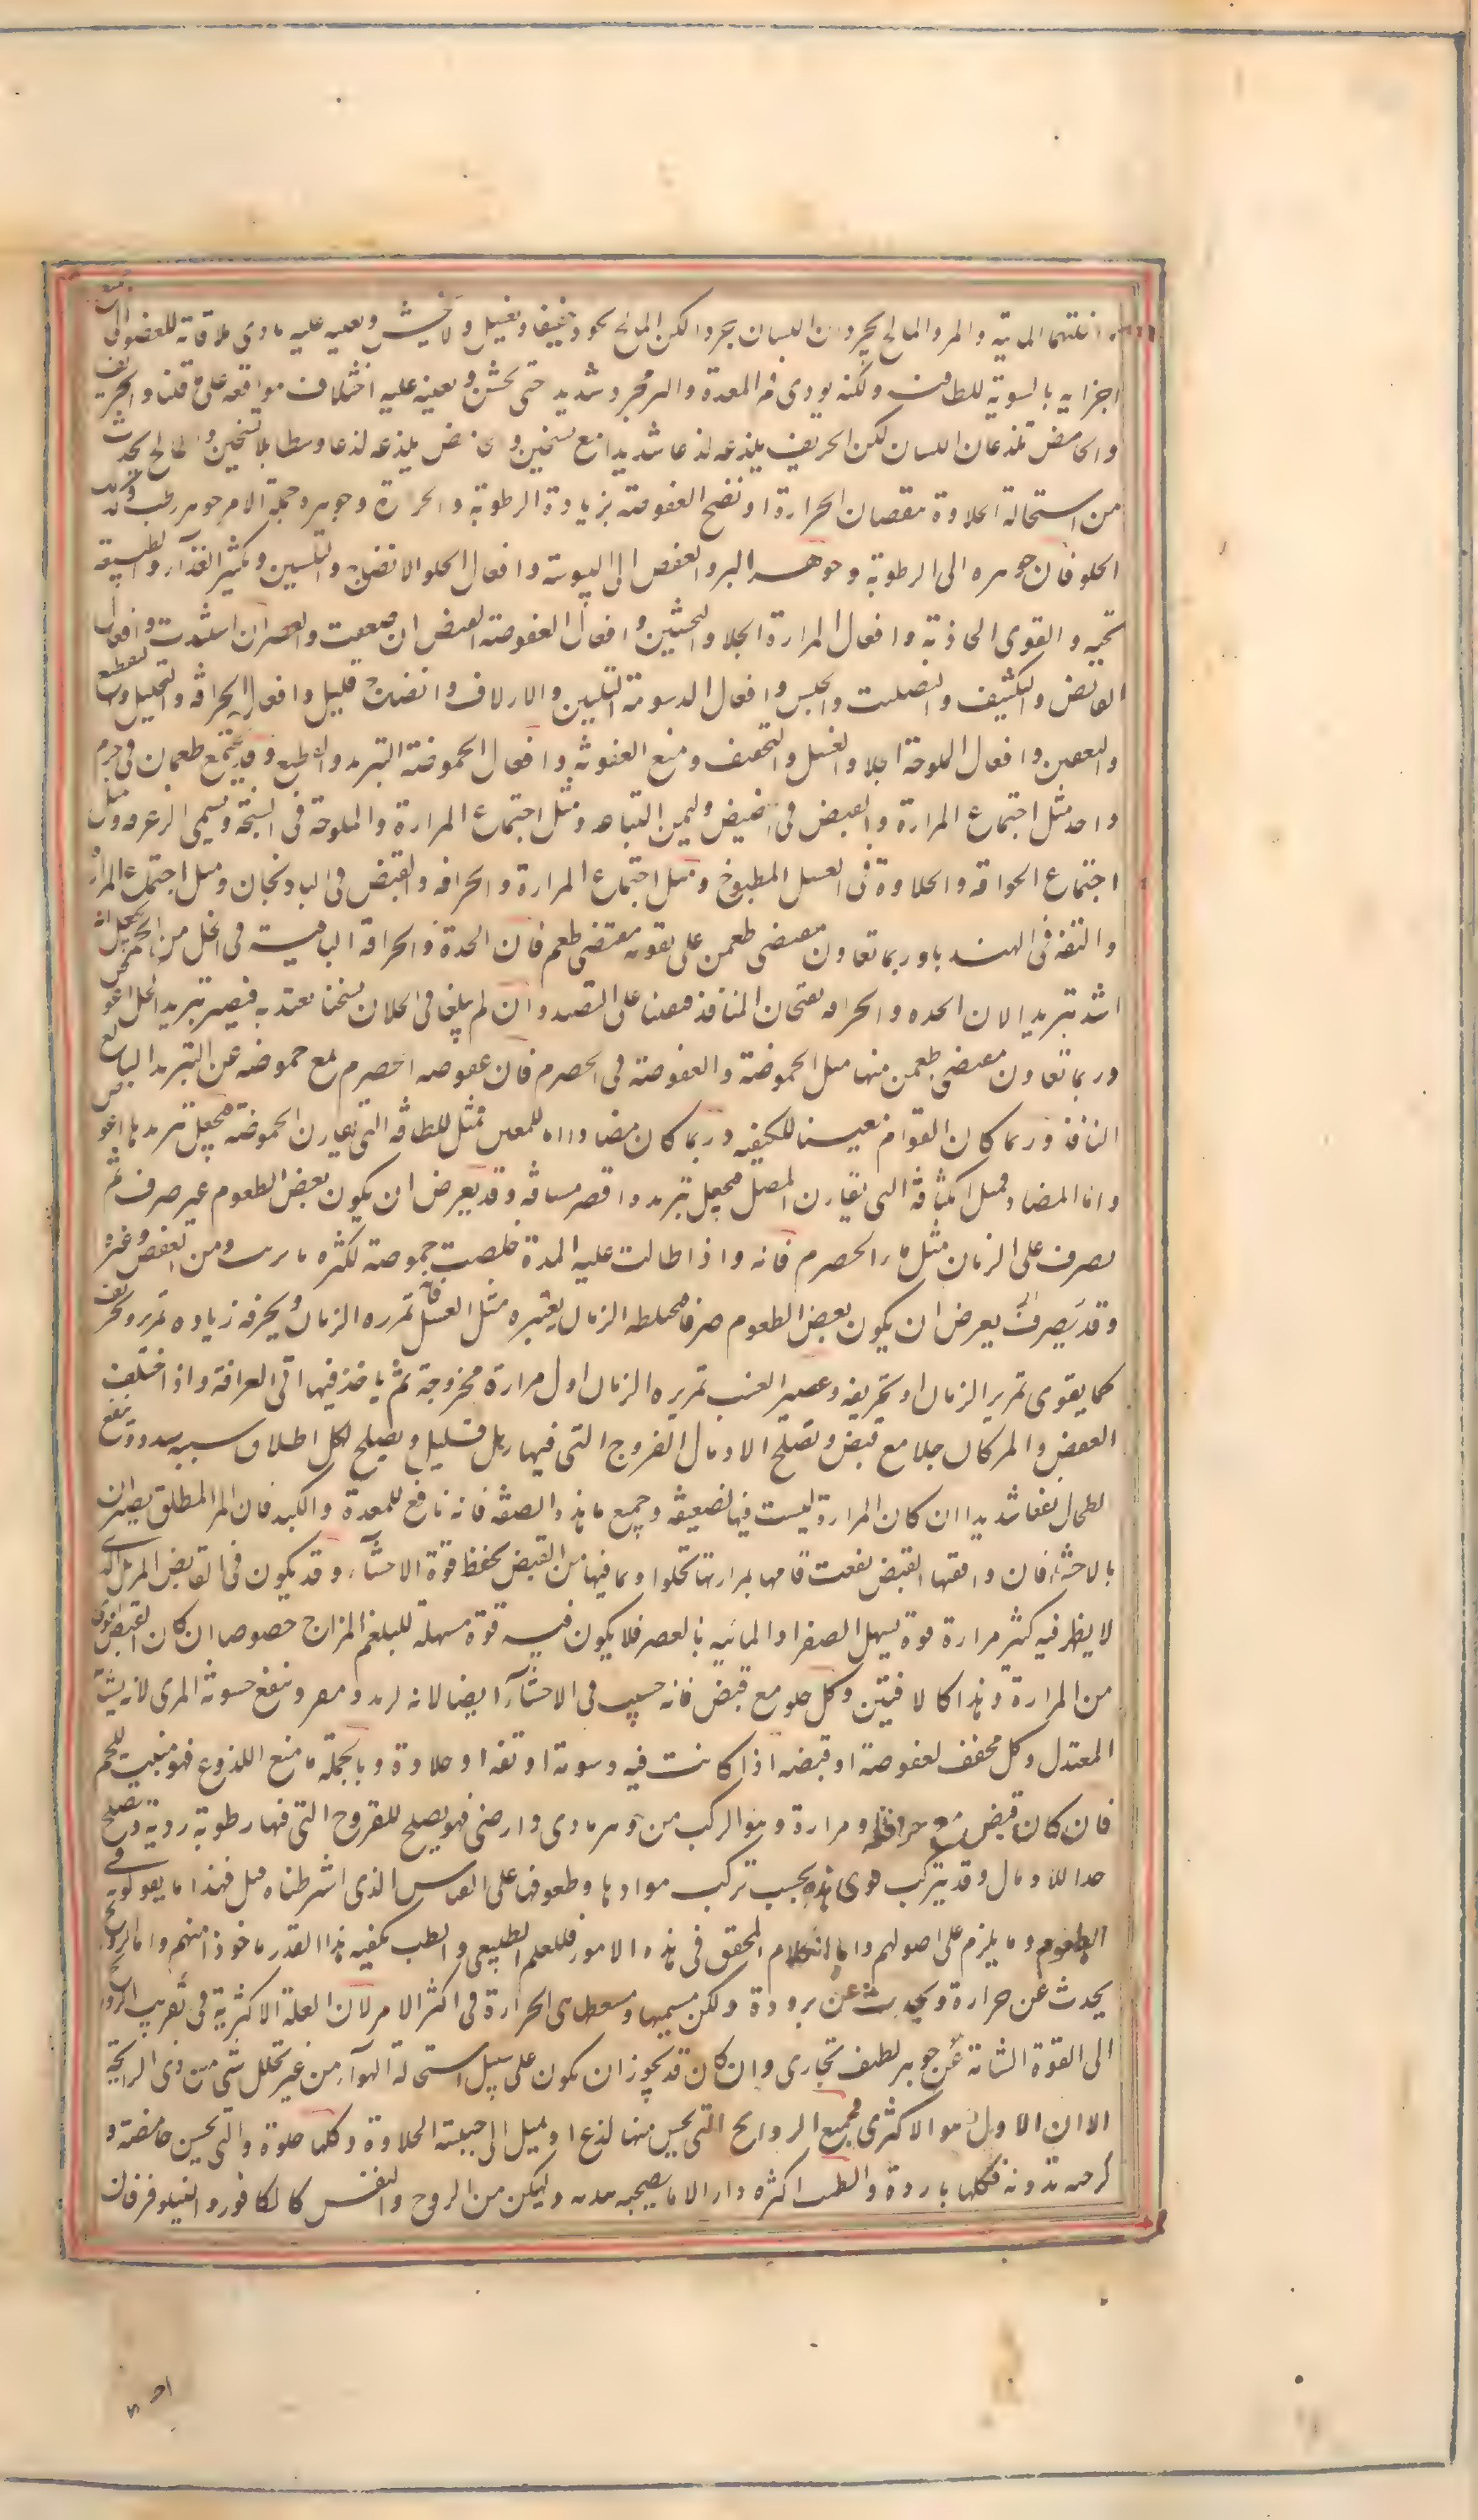 المائية والمر والمالح يجردان اللسان جردا لكن المالح يجرد خفيفا ويغسل ولا يخشن ويعينه عليه تادي ملاقاته للعضو
اجزايه بالسوية للطافته ولكنه يودي فم المعدة والمر يجرد شديد حتى يخشن ويعينه عليه اختلاف مواقعه على ما قلنا والحريف
والحامض تلذعان اللسان لكن الحريف يلذعه لذعا شديدا مع تسخين والحامض يلذعه لذعا وسطا بلا تسخين والمالح يحدث
من استحالة الحلاوة بنقصان الحرارة او نضج العفوصة بزيادة الرطوبة والحرارة وجوهره وجملة الامر جوهر رطب
الحلو فان جوهره الى الرطوبة وجوهر المر والعفص الى اليبوسة وافعال الحلو الانضاج والتليين وتكثير الغذآء والطبيعة
تحبه والقوى الجاذبة وافعال المرارة الجلا والتخشين وافعال العفوصة القبض ان ضعفت والعصر ان اشتدت وافعال
القابض والتكثيف والتصليب والحبس وافعال الدسومة التليين والازلاق وانضاج قليل وافعال الحرافة والتحليل والتقطيع
والتعفين وافعال الملوحة الجلا والغسل والتجفيف ومنع العفونة وافعال الحموضة التبريد والتقطيع وقد يجتمع طعمان في جرم
واحد مثل اجتماع المرارة والقبض في الحضيض ومثل اجتماع المرارة والملوحة في السبخة ويسمى الزعوقة ومثل
اجتماع الحرافة والحلاوة في العسل المطبوخ ومثل اجتماع المرارة والحرافة والقبض في الباذنجان ومثل اجتماع المرارة
والتفه في الهندبا وربما تعاون مقتضى طعمين على تقوية مقتضى طعم فان الحدة والحرافة الباقية في الخل من الخمر يجعل
اشد تبريدا لان الحده والحرافه يفتحان المنافذ فيعينا على التنفيذ وان لم يبلغا في الخل ان يسخنا يعتد به فيصير تبريد الخل اغوص
وربما تعاون مقتضى طعمين منها مثل الحموضة والعفوصة في الحصرم فان عفوصه الحصرم يمنع حموضته عن التبريد البالغ
النافذ وربما كان القوام معينا للكيفيه وربما كان مضادا اما المعين فمثل اللطافه التي تقارن الحموضة فيجعل تبريدها اغوص
واما المضاد فمثل الكثافة التي تقارن المصل فيجعل تبريده اقصر مسافة وقد يعرض ان يكون بعض الطعوم غير صرف ثم
يصرف على الزمان مثل ماء الحصرم فانه واذا طالت عليه المدة خلصت حموضته لكثرة ما يرسب من العفص وغيره
وقد يعرض ان يكون بعض الطعوم صرفا فيخلطه الزمان بغيره مثل العسل فانه تمرره الزمان ويحرفه زياده تمرير وتحريف
كما يقوى تمرير الزمان او تحريفه وعصير العنب تمريره الزمان اول مرارة ممزوجة ثم ياخذ فيها الى الحرافة واذا اختلط
العفص والمر كان جلا مع قبض وتصلح لادمال القروح التي فيها رهل قليل ويصلح لكل اطلاق سببه سدد وينفع
الطحال نفعا شديدا ان كان المرارة ليست فيها لضعيفه وجميع ما بهذه الصفه فانه نافع للمعدة والكبد فان المر المطلق يضران
بالاحشا فان وافقها القبض نفعت فانها بمرارتها تحلو وبما فيها من القبض يحفظ قوة الاحشآء وقد يكون في القابض المر بل الذي
لا يظهر فيه كثير مرارة قوة تسهل الصفرا والمائيه بالعصر فلا يكون فيه قوة مسهلة للبلغم المزاج خصوصا ان كان القبض اقوى
من المرارة وهذا كالافنتين وكل حلو مع قبض فانه حبيب في الاحشآء ايضا لانه لذيذ ومقو وينفع خشونة المري لانه يشابه
المعتدل وكل مجفف لعفوصة او قبضه اذا كانت فيه دسومة او تفه او حلاوة وبالجملة ما منع اللذوع فهو منبت للحم
فان كان قبض مع حرافة او مرارة وهو المركب من جوهر ناري وارضي فهو يصلح للقروح التي فيها رطوبة ردية ويصلح
جدا للادمال وقد يتركب قوى هذه بحسب تركب موادها وطعومها على القياس الذي اشرطناه قبل فهذا ما يقولونه في
الطعوم وما يلزم على اصولهم واما الكلام المحقق في هذه الامور فللعلم الطبيعي والطب يكفيه هذا القدر ماخوذا منهم واما الروايح
يحدث عن حرارة ويحدث عن برودة ولكن مسميها ومسعطها هي الحرارة في اكثر الامر لان العلة الاكثرية في تقريب الروايح
الى القوة الشامة عن جوهر لطيف بخاري وان كان قد يجوز ان يكون على سبيل استحالة الهوآء من غير تحلل شي من ذي الرايحة
الا ان الاول هو الاكثري فجميع الروايح التي يحس منها لذع او تميل الى جنبته الحلاوة وكلها حلوة والتي يحس حامضة و
كرجيه نديه فكلها باردة والطيب اكثره حار الا ما يصحبه نديه وتسكين من الروح والنفس كالكافور والنيلوفر فان